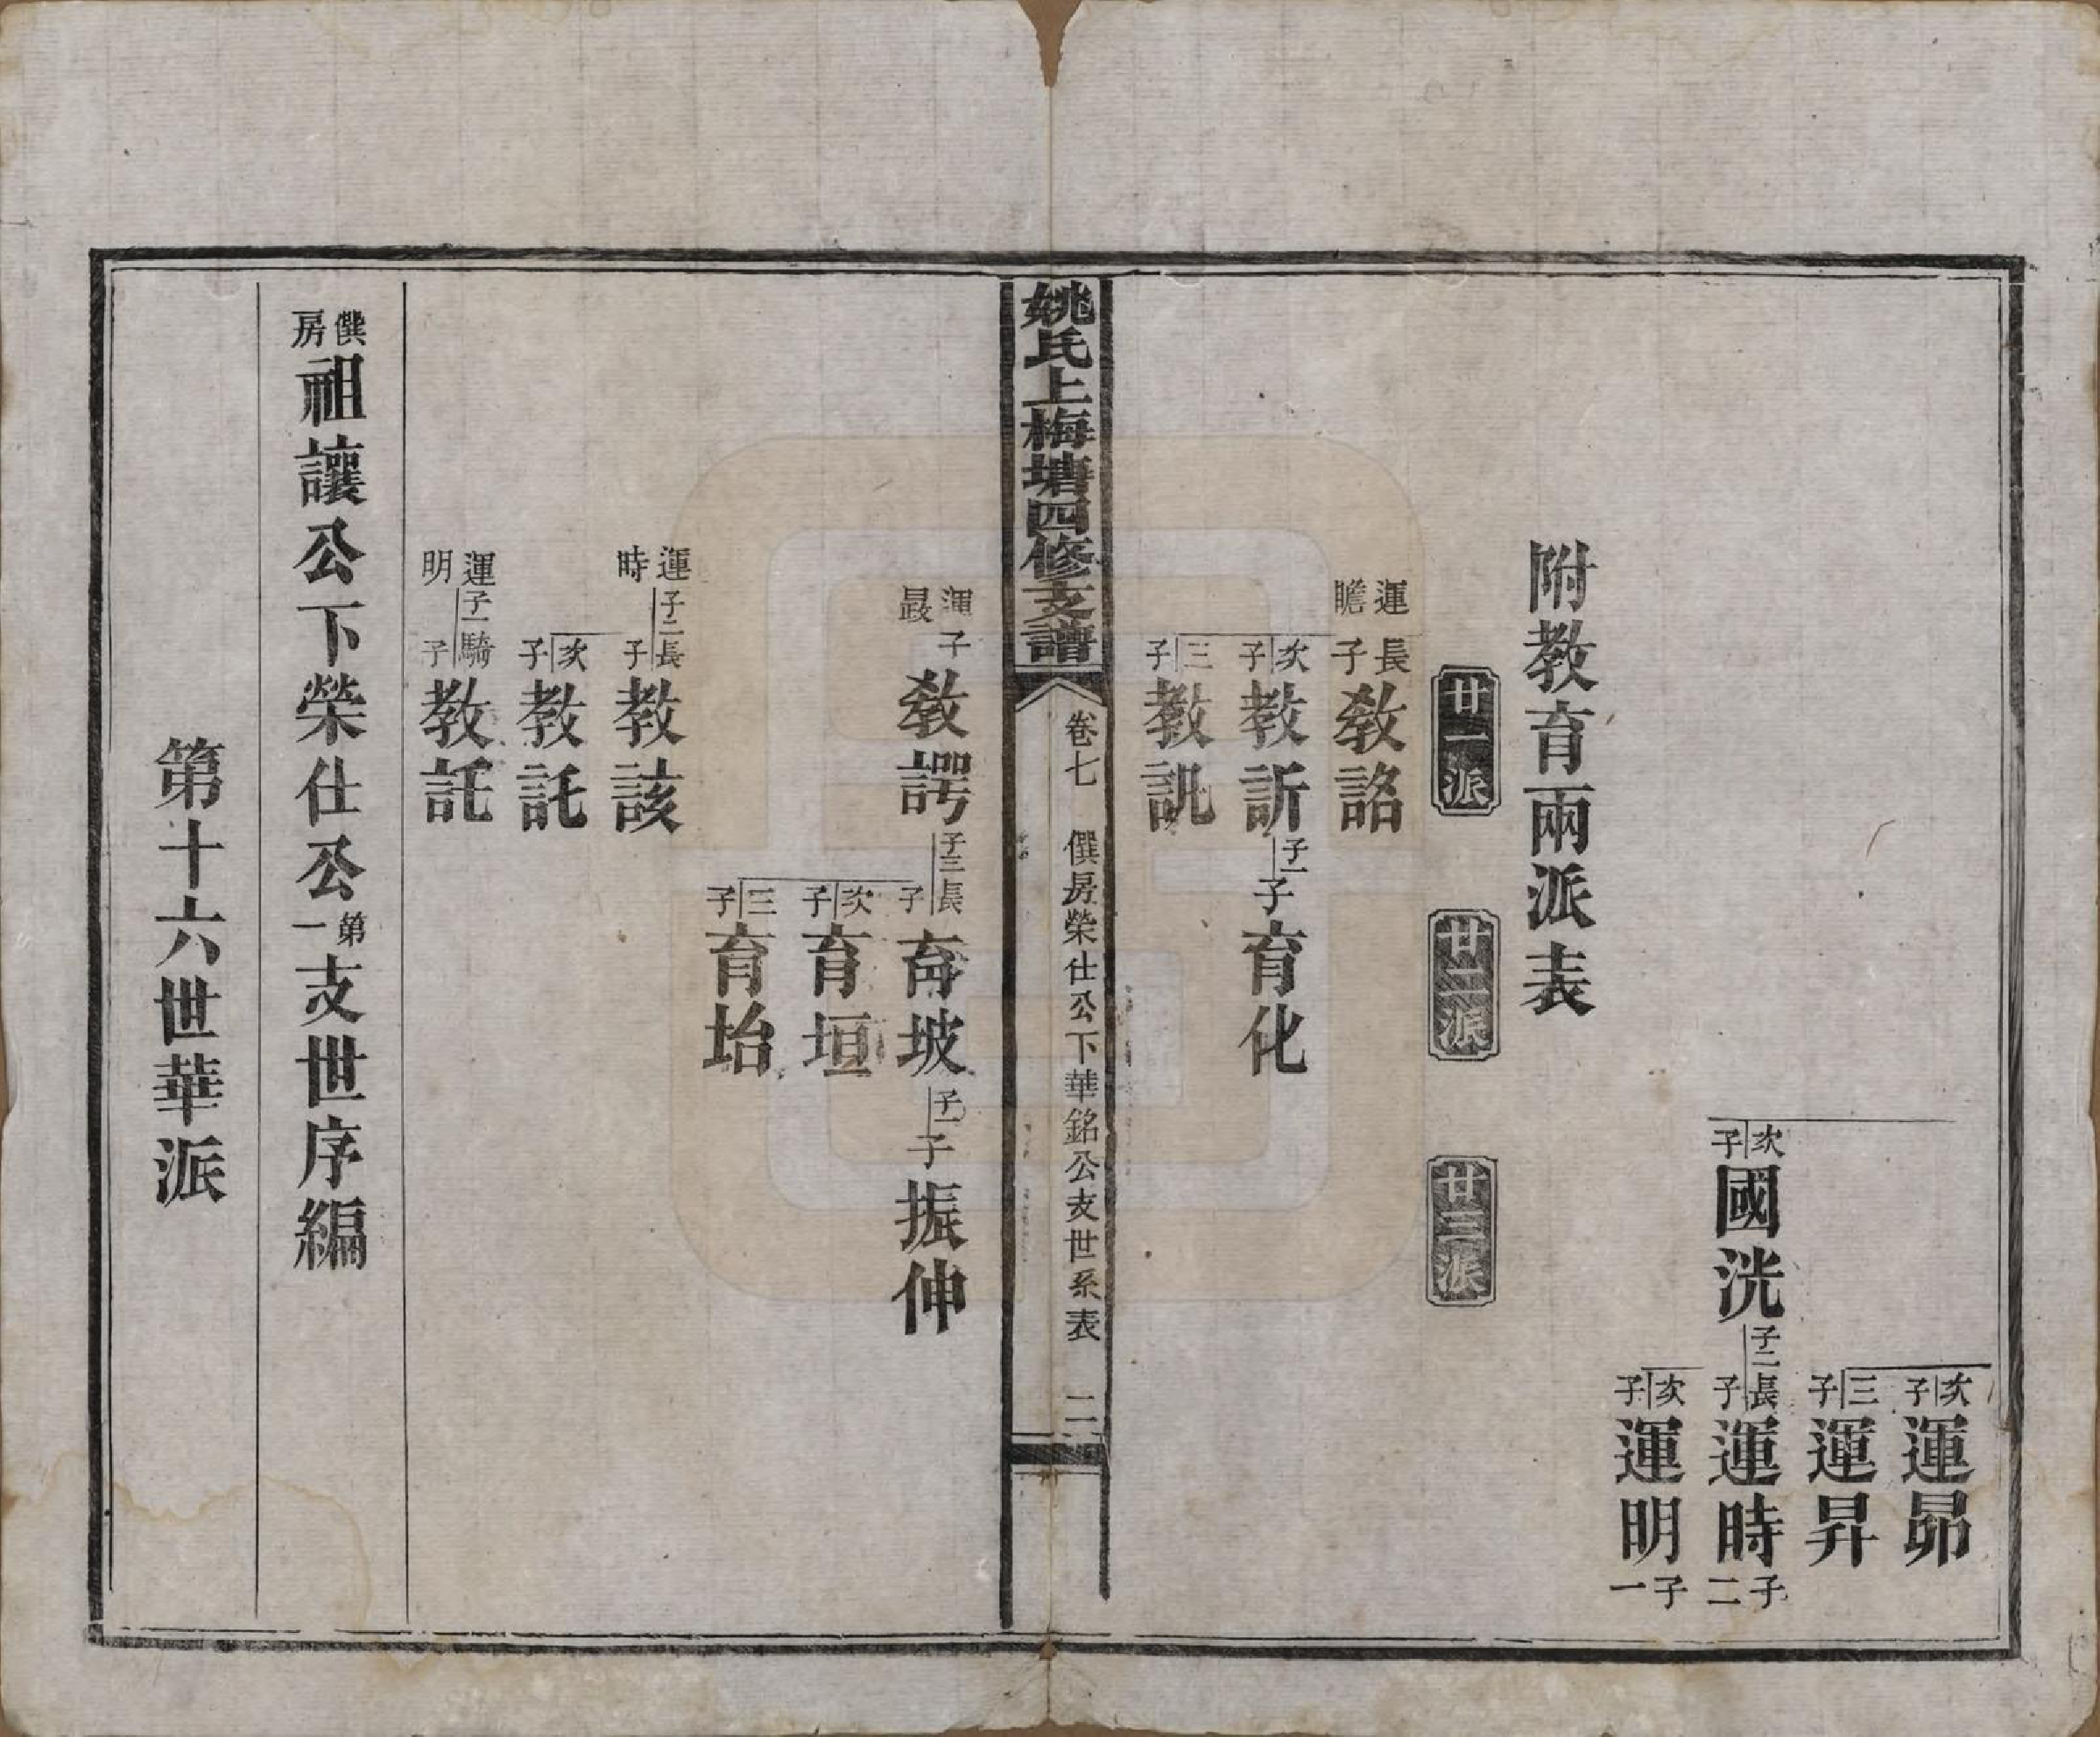 次子運昴
三子運昇
次子國洸子二長子運時子二
次子運明子一
附教育兩派表
廿一派 廿二派 廿三派
運瞻長子教詻
次子教訢子一子育化
三子教訊
姚氏上梅塘四修支譜 卷七 僎房榮仕公下華銘公支世系表 二
運晸子教諤子三長子育坡子一子振伸
次子育垣
三子育坮
運時子二長子教該
次子教託
運明子一騎子教託
僎房祖讓公下榮仕公第一支世序編
第十六世華派